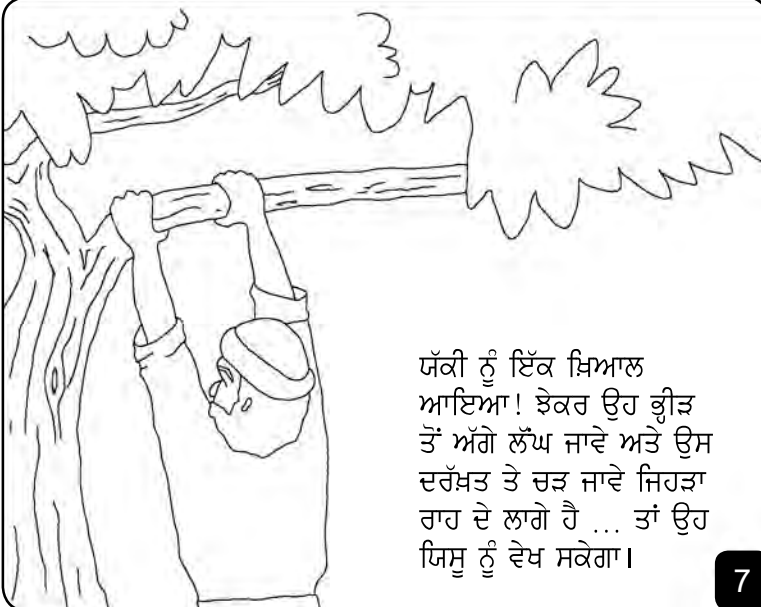 ਯੱਕੀ ਨੂੰ ਇੱਕ ਖ਼ਿਆਲ
ਆਇਆ! ਝੇਕਰ ਉਹ ਭ੍ਹੀੜ
ਤੋਂ ਅੱਗੇ ਲੰੱਘ ਜਾਵੇ ਅਤੇ ਉਸ
ਦਰੱਖ਼ਤ ਤੇ ਚੜ ਜਾਵੇ ਜਿਹੜਾ
ਰਾਹ ਦੇ ਲਾਗੇ ਹੈ ... ਤਾਂ ਉਹ
ਯਿਸੂ ਨੂੰ ਵੇਖ ਸਕੇਗਾ।
7